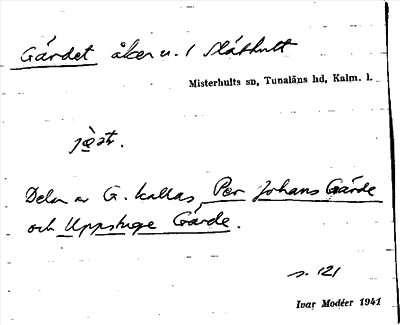 Gärdet åker u. 1 Slåthult
Misterhults sn, Tunaläns hd, Kalm. l.
Delar av G. kallas Per Johans Gärde
och Uppstuge Gärde.
s. 121
Ivar Modéer 1941